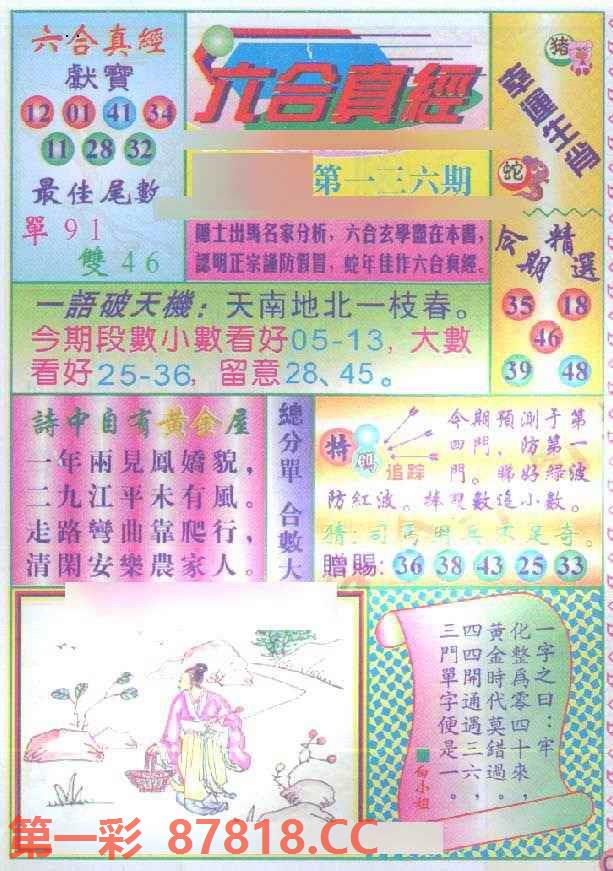 六合真經
獻寶
12 01 41 34
11 28 32
最佳尾數
單 91
雙 46
六合真經
第一三六期
隱士出馬名家分析，六合玄學盡在本書，
認明正宗謹防假冒，蛇年佳作六合真經。
豬
蛇
今期精選
35 18
46
39 48
一語破天機：天南地北一枝春。
今期段數小數看好05-13，大數
看好25-36，留意28、45。
詩中自有黃金屋
一年兩見鳳嬌貌，
二九江平未有風。
走路彎曲靠爬行，
清閑安樂農家人。
總分單 合數大
特碼
追踪
今期預測于第
四門，防第一
門。睇好綠波
防紅波。捧雙數追小數。
猜：司馬明兵不足奇。
贈賜：36 38 43 25 33
一字之曰：牢
化整為零四十來，
黃金時代莫錯過。
四四開通遇三六，
三門單字便是一。
白小姐
第一彩 87818.CC